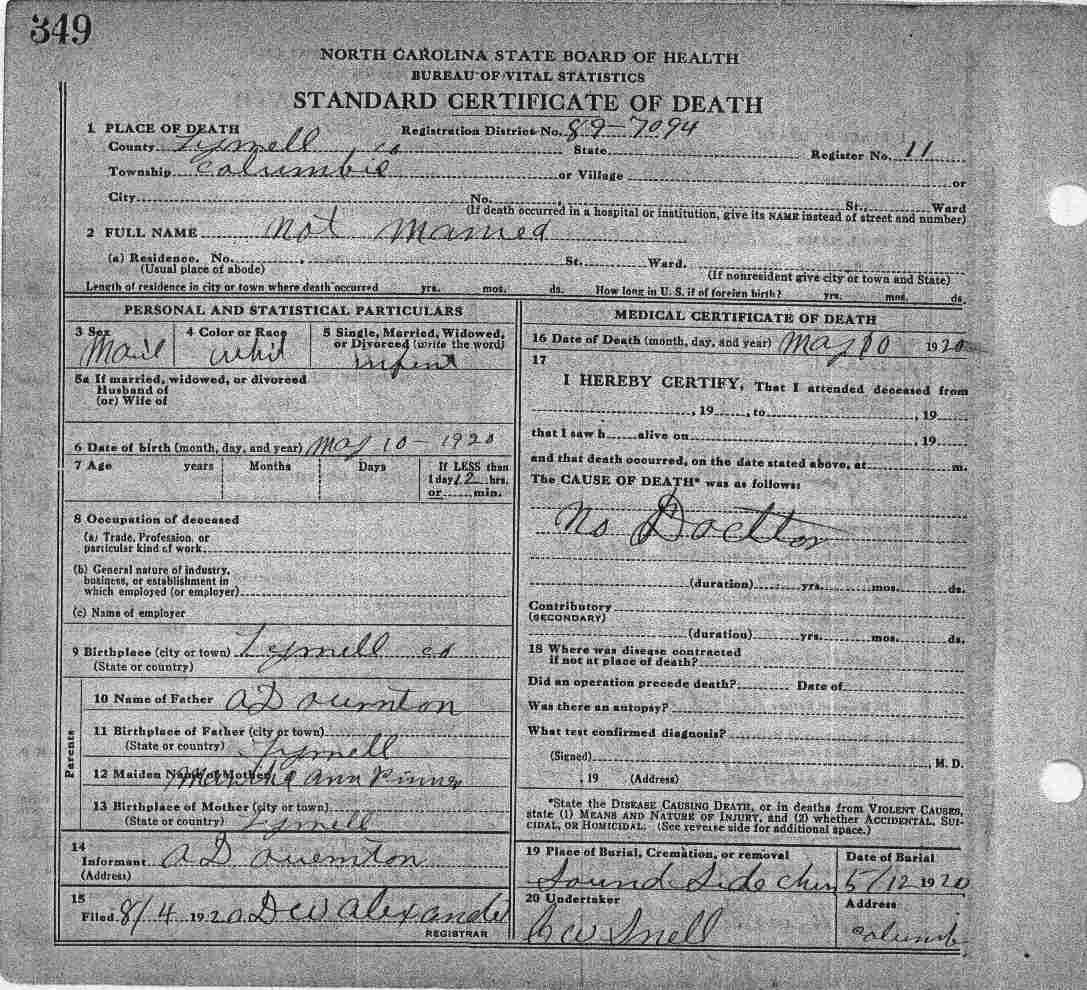 349
NORTH CAROLINA STATE BOARD OF HEALTH
BUREAU OF VITAL STATISTICS
STANDARD CERTIFICATE OF DEATH
1 PLACE OF DEATH Registration District No. 89-7094
County Tyrrell co State Register No. 11
Township Columbia or Village or
City No. , St., Ward
(If death occurred in a hospital or institution, give its NAME instead of street and number)
2 FULL NAME Not Named
(a) Residence. No. , St. Ward.
(Usual place of abode) (If nonresident give city or town and State)
Length of residence in city or town where death occurred yrs. mos. ds. How long in U. S. if of foreign birth? yrs. mos. ds.
PERSONAL AND STATISTICAL PARTICULARS
3 Sex 4 Color or Race 5 Single, Married, Widowed,
or Divorced (write the word)
Mail whit infent
5a If married, widowed, or divorced
Husband of
(or) Wife of
6 Date of birth (month, day, and year) May 10 - 1920
7 Age years Months Days If LESS than
1 day 12 hrs.
or min.
8 Occupation of deceased
(a) Trade, Profession, or
particular kind of work
(b) General nature of industry,
business, or establishment in
which employed (or employer)
(c) Name of employer
9 Birthplace (city or town) Tyrrell co
(State or country)
Parents
10 Name of Father A D
11 Birthplace of Father (city or town)
(State or country) Tyrrell
12 Maiden Name of Mother Ann
13 Birthplace of Mother (city or town)
(State or country) Tyrrell
14
Informant A D
(Address)
15
Filed 8/4 1920 D C W Alexander
REGISTRAR
MEDICAL CERTIFICATE OF DEATH
16 Date of Death (month, day, and year) May 10 1920
17
I HEREBY CERTIFY, That I attended deceased from
, 19 , to , 19
that I saw h alive on , 19
and that death occurred, on the date stated above, at m.
The CAUSE OF DEATH* was as follows:
No Docttor
(duration) yrs. mos. ds.
Contributory
(SECONDARY)
(duration) yrs. mos. ds.
18 Where was disease contracted
if not at place of death?
Did an operation precede death? Date of
Was there an autopsy?
What test confirmed diagnosis?
(Signed) M. D.
, 19 (Address)
*State the DISEASE CAUSING DEATH, or in deaths from VIOLENT CAUSES,
state (1) MEANS AND NATURE OF INJURY, and (2) whether ACCIDENTAL, SUI-
CIDAL, OR HOMICIDAL. (See reverse side for additional space.)
19 Place of Burial, Cremation, or removal Date of Burial
Sound Side 5/12 1920
20 Undertaker Address
C W Snell Columb